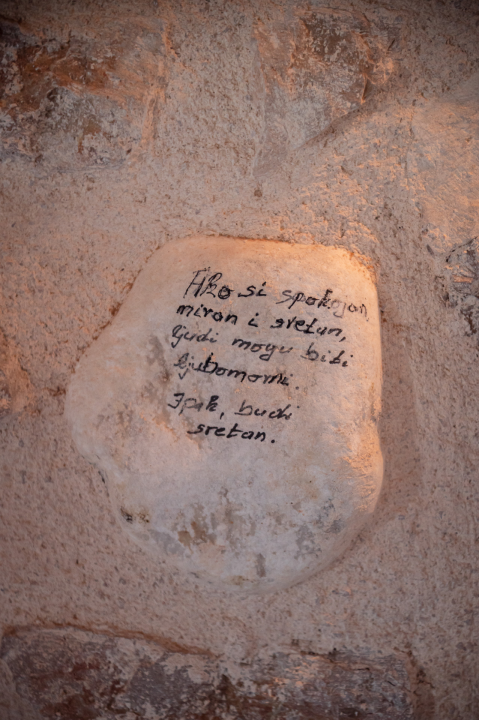 Ako si spokojan,
miran i sretan,
ljudi mogu biti
ljubomorni.
Ipak, budi
sretan.